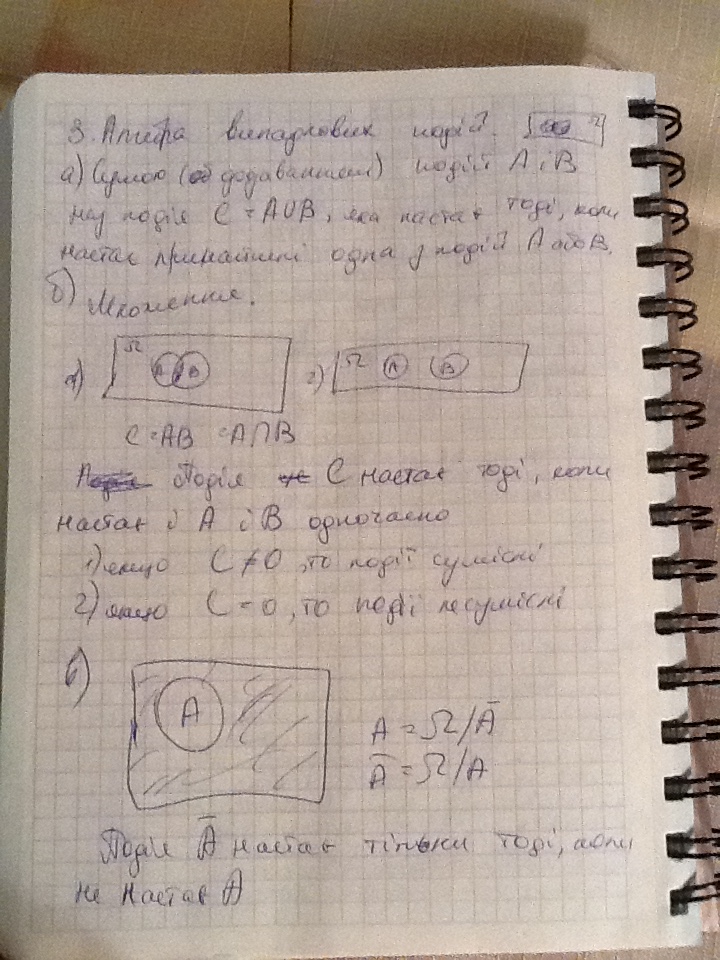 3. Алгебра випадкових подій. Ω
а) Сумою (додаванням) подій А і В
наз подію C = A∪B, яка настає тоді, коли
настає принаймні одна з подій А або В.
б) Множення.
1) Ω A B 2) Ω A B
C = AB = A∩B
Подія C настає тоді, коли
настає і А і В одночасно
1) якщо C ≠ 0, то події сумісні
2) якщо C = 0, то події несумісні
в)
A
A = Ω/Ā
Ā = Ω/A
Подія Ā настає тільки тоді, коли
не настає А